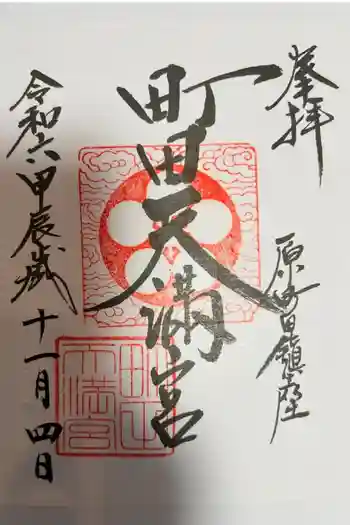 奉拝
原町田鎮座
町田天満宮
令和六甲辰歳十一月四日
町田天満宮